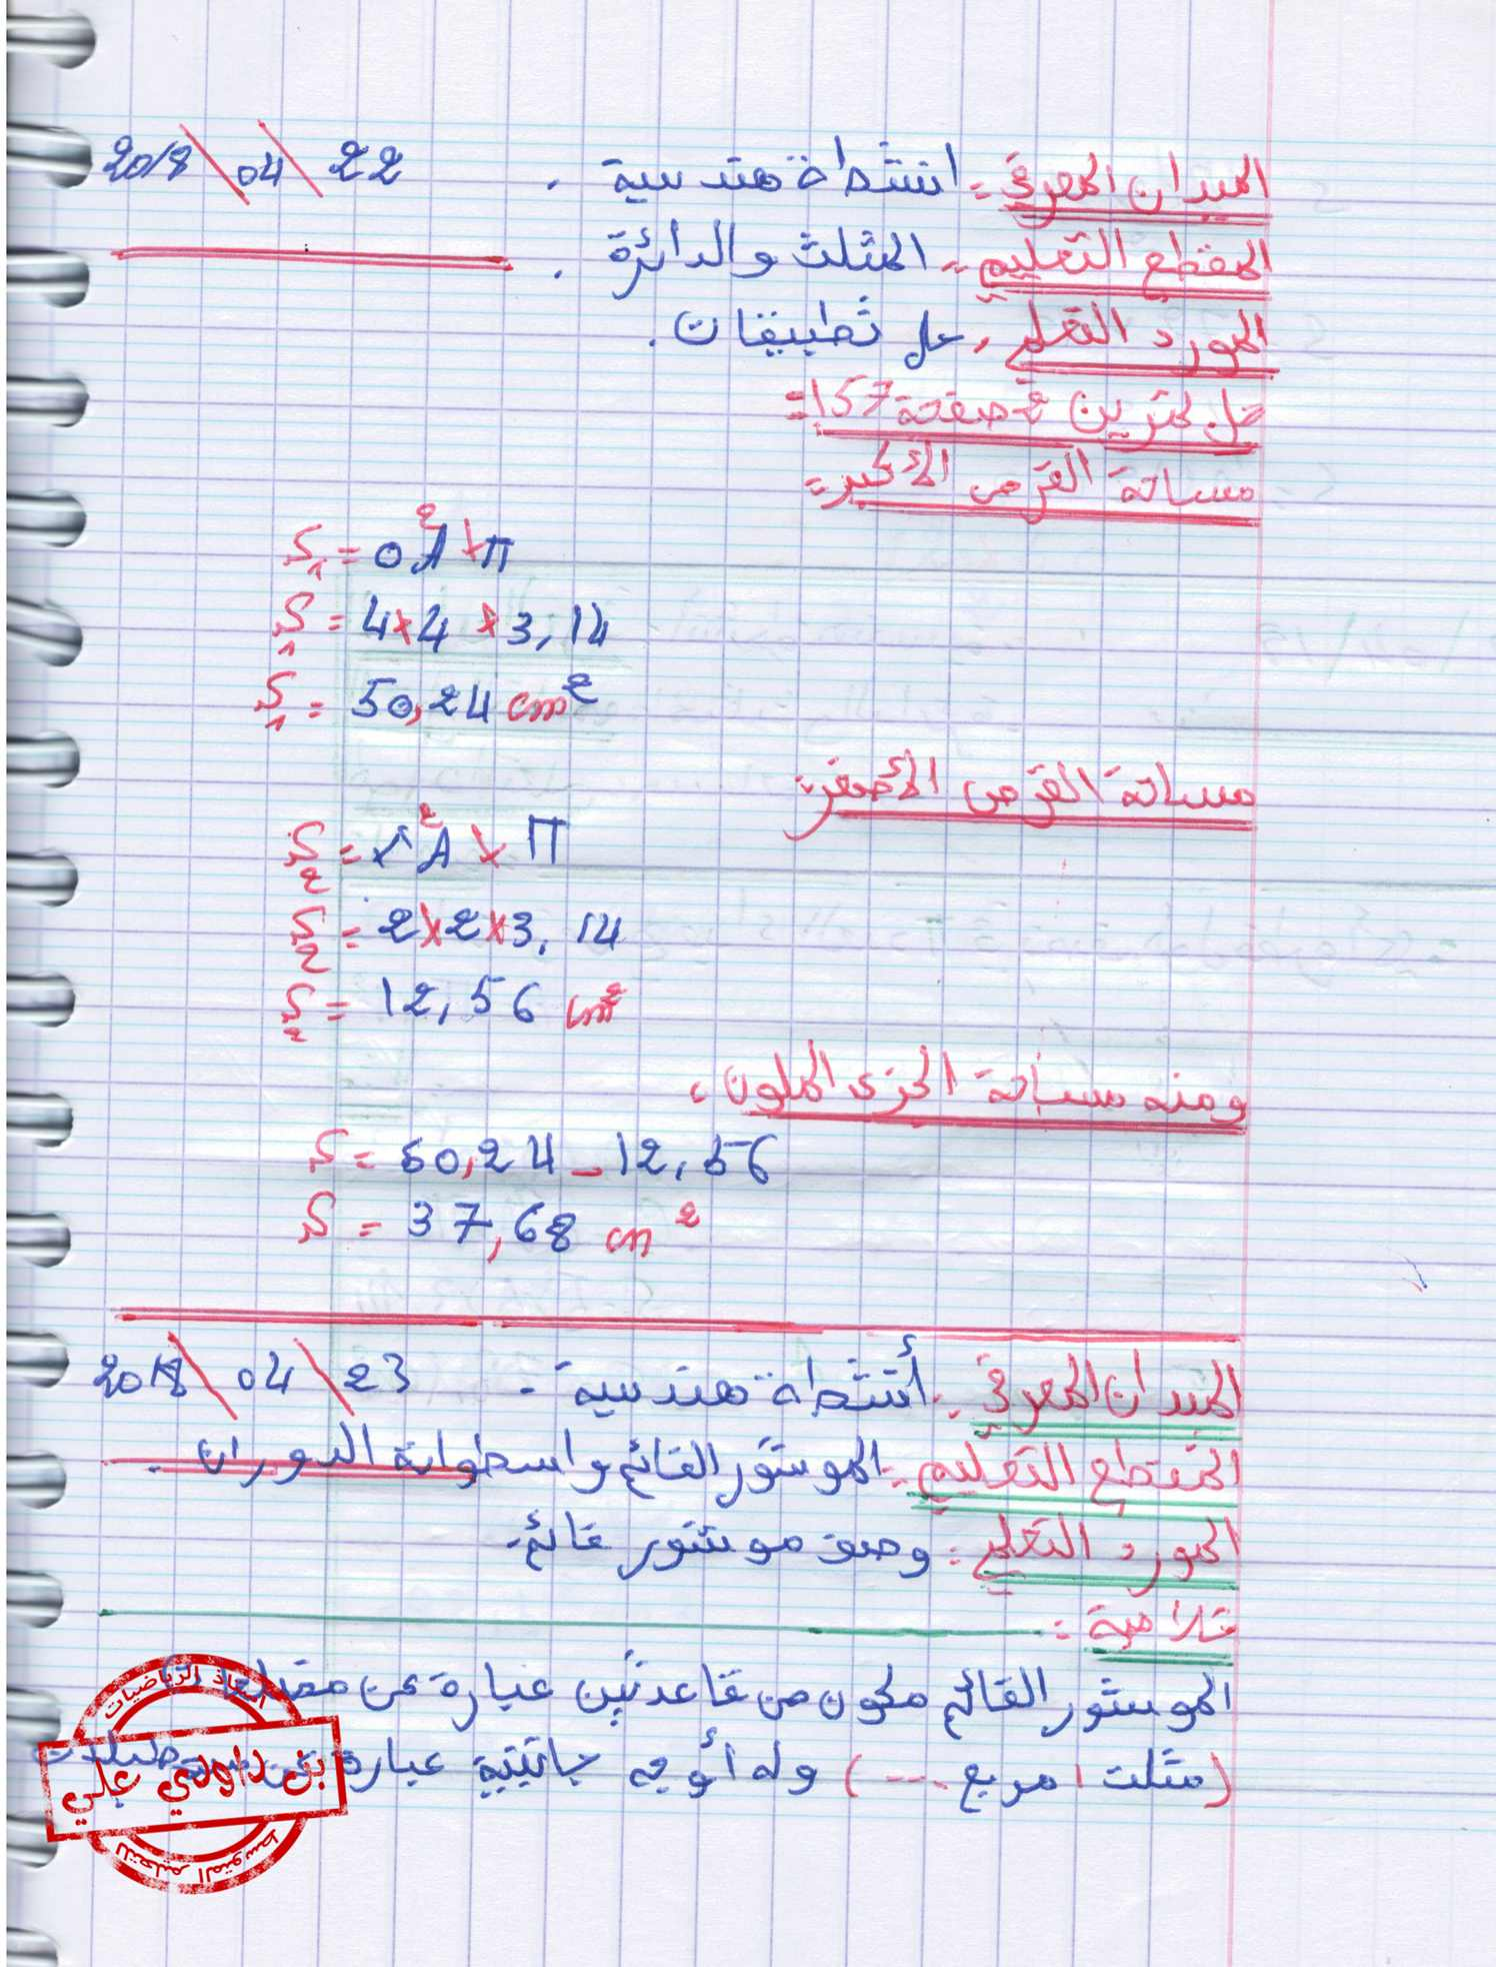 الميدان المعرفي: انشطة هندسية. 22/04/2018
المقطع التعليمي: المثلث والدائرة.
المورد التعلمي: حل تطبيقات.
حل تمرين 2 صفحة 157:
مساحة القرص الأكبر:
S₁ = OA² × π
S₁ = 4 × 4 × 3,14
S₁ = 50,24 cm²
مساحة القرص الأصغر:
S₂ = A² × π
S₂ = 2 × 2 × 3,14
S₂ = 12,56 cm²
ومنه مساحة الجزء الملون:
S = 50,24 - 12,56
S = 37,68 cm²
الميدان المعرفي: أنشطة هندسية. 23/04/2018
المقطع التعليمي: الموشور القائم واسطوانة الدوران.
المورد التعلمي: وصف موشور قائم.
خلاصة:
الموشور القائم مكون من قاعدتين عبارة عن مضلعا
(مثلث، مربع ...) وله أوجه جانبية عبارة عن مستطيلات
أستاذ الرياضيات
بن داودي علي
للتعليم المتوسط